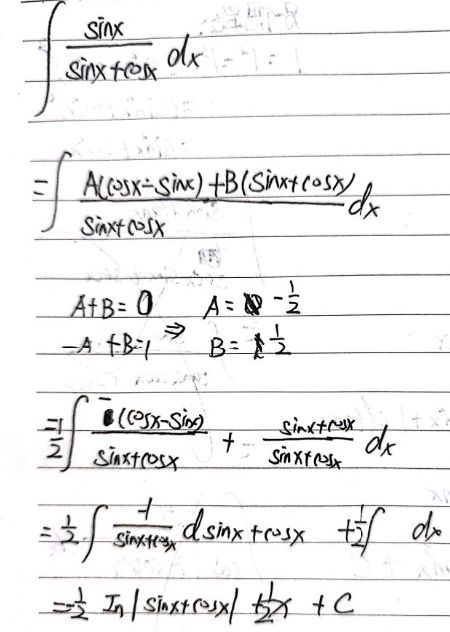 ∫ sinx / (sinx+cosx) dx
= ∫ (A(cosx-sinx)+B(sinx+cosx)) / (sinx+cosx) dx
A+B=0 ⇒ A= -1/2
-A+B=1 B= 1/2
= 1/2 ∫ -(cosx-sinx) / (sinx+cosx) + (sinx+cosx) / (sinx+cosx) dx
= 1/2 ∫ -1 / (sinx+cosx) d sinx+cosx + 1/2 ∫ dx
= -1/2 In|sinx+cosx| + 1/2 x + C